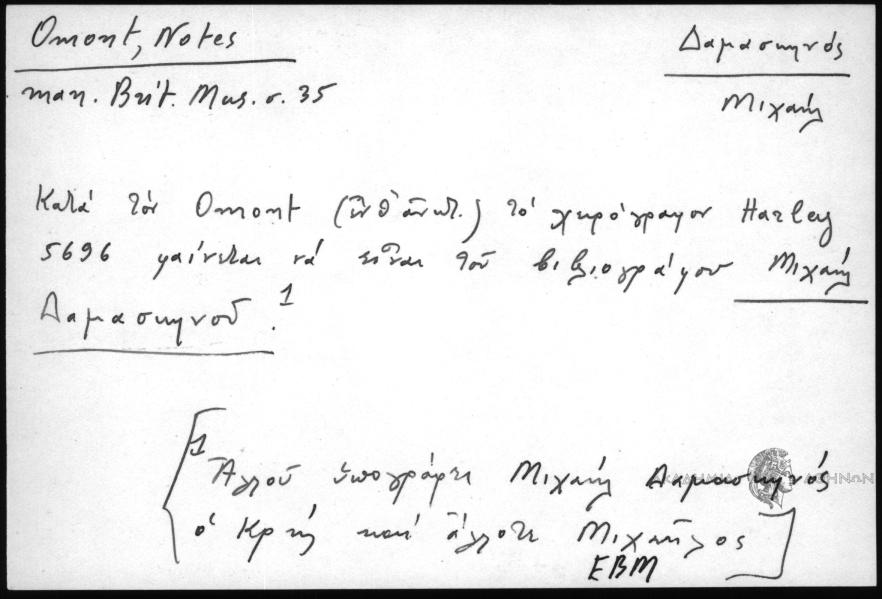 Omont, Notes
man. Brit. Mus. σ. 35
Δαμασκηνός
Μιχαήλ
Κατά τόν Omont (ἔνθ' ἀνωτ.) τό χειρόγραφον Harley
5696 φαίνεται νά εἶναι τοῦ βιβλιογράφου Μιχαήλ
Δαμασκηνοῦ.¹
[¹ Ἀλλοῦ ὑπογράφει Μιχαήλ Δαμασκηνός
ὁ Κρής καί ἄλλοτε Μιχαῆλος]
ΕΒΜ
ΑΚΑΔΗΜΙΑ ΑΘΗΝΩΝ